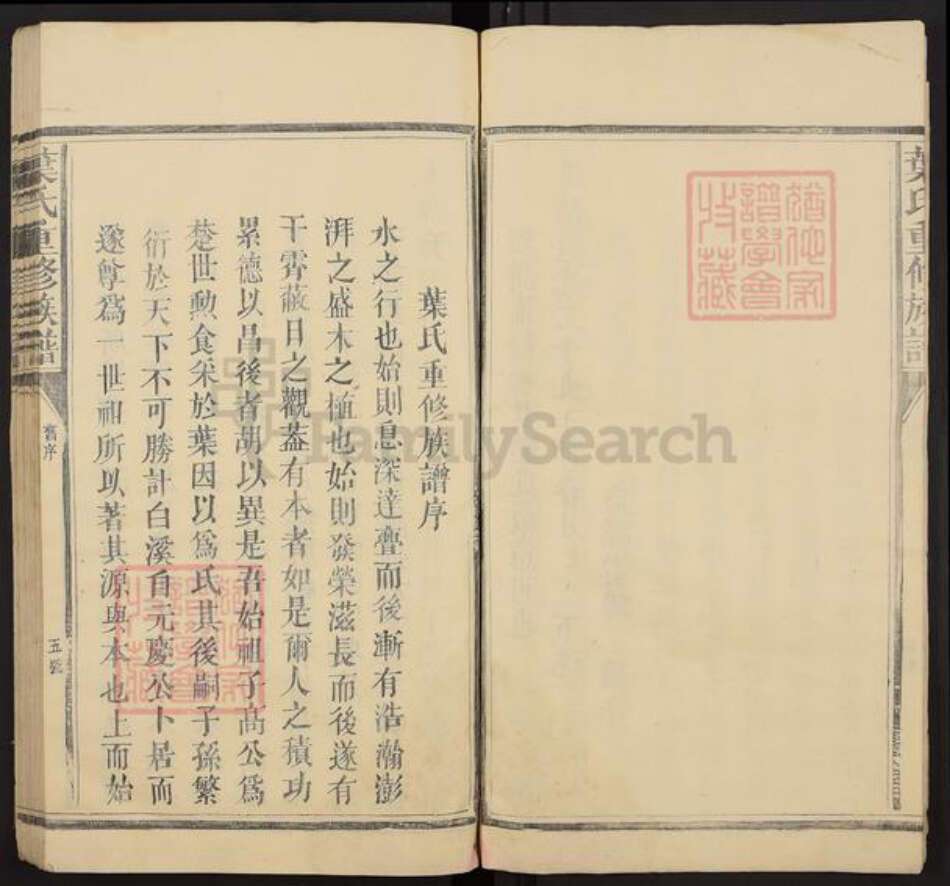 葉氏重修族譜
葉氏重修族譜序
水之行也始則息深達亹而後漸有浩瀚澎
湃之盛木之植也始則發榮滋長而後遂有
干霄蔽日之觀葢有本者如是爾人之積功
累德以昌後者胡以異是吾始祖子高公爲
楚世勲食采於葉因以爲氏其後嗣子孫繁
衍於天下不可勝計白溪自元慶公卜居而
遂尊爲一世祖所以著其源與本也上而始
葉氏重修族譜
舊序
五號
FamilySearch